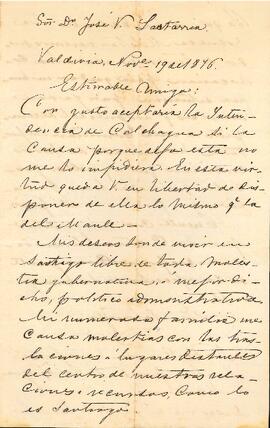 Sor. Dn. José V. Lastarria
Valdivia, Nove. 19 de 1876.
Estimable Amigo:
Con gusto aceptaría la Inten-
dencia de Colchagua si la
causa porque dejo esta no
me lo impidiera. En esta vir-
tud queda V. en libertad de dis-
poner de ella lo mismo q. la
del Maule.
Mis deseos son de vivir en
Santiago libre de toda moles-
tia gubernativa, ó mejor di-
cho, político administrativa.
Mi numerada familia me
causa molestias con las tras-
laciones á lugares distantes
del centro de nuestras rela-
ciones i recursos, como lo
es Santiago.